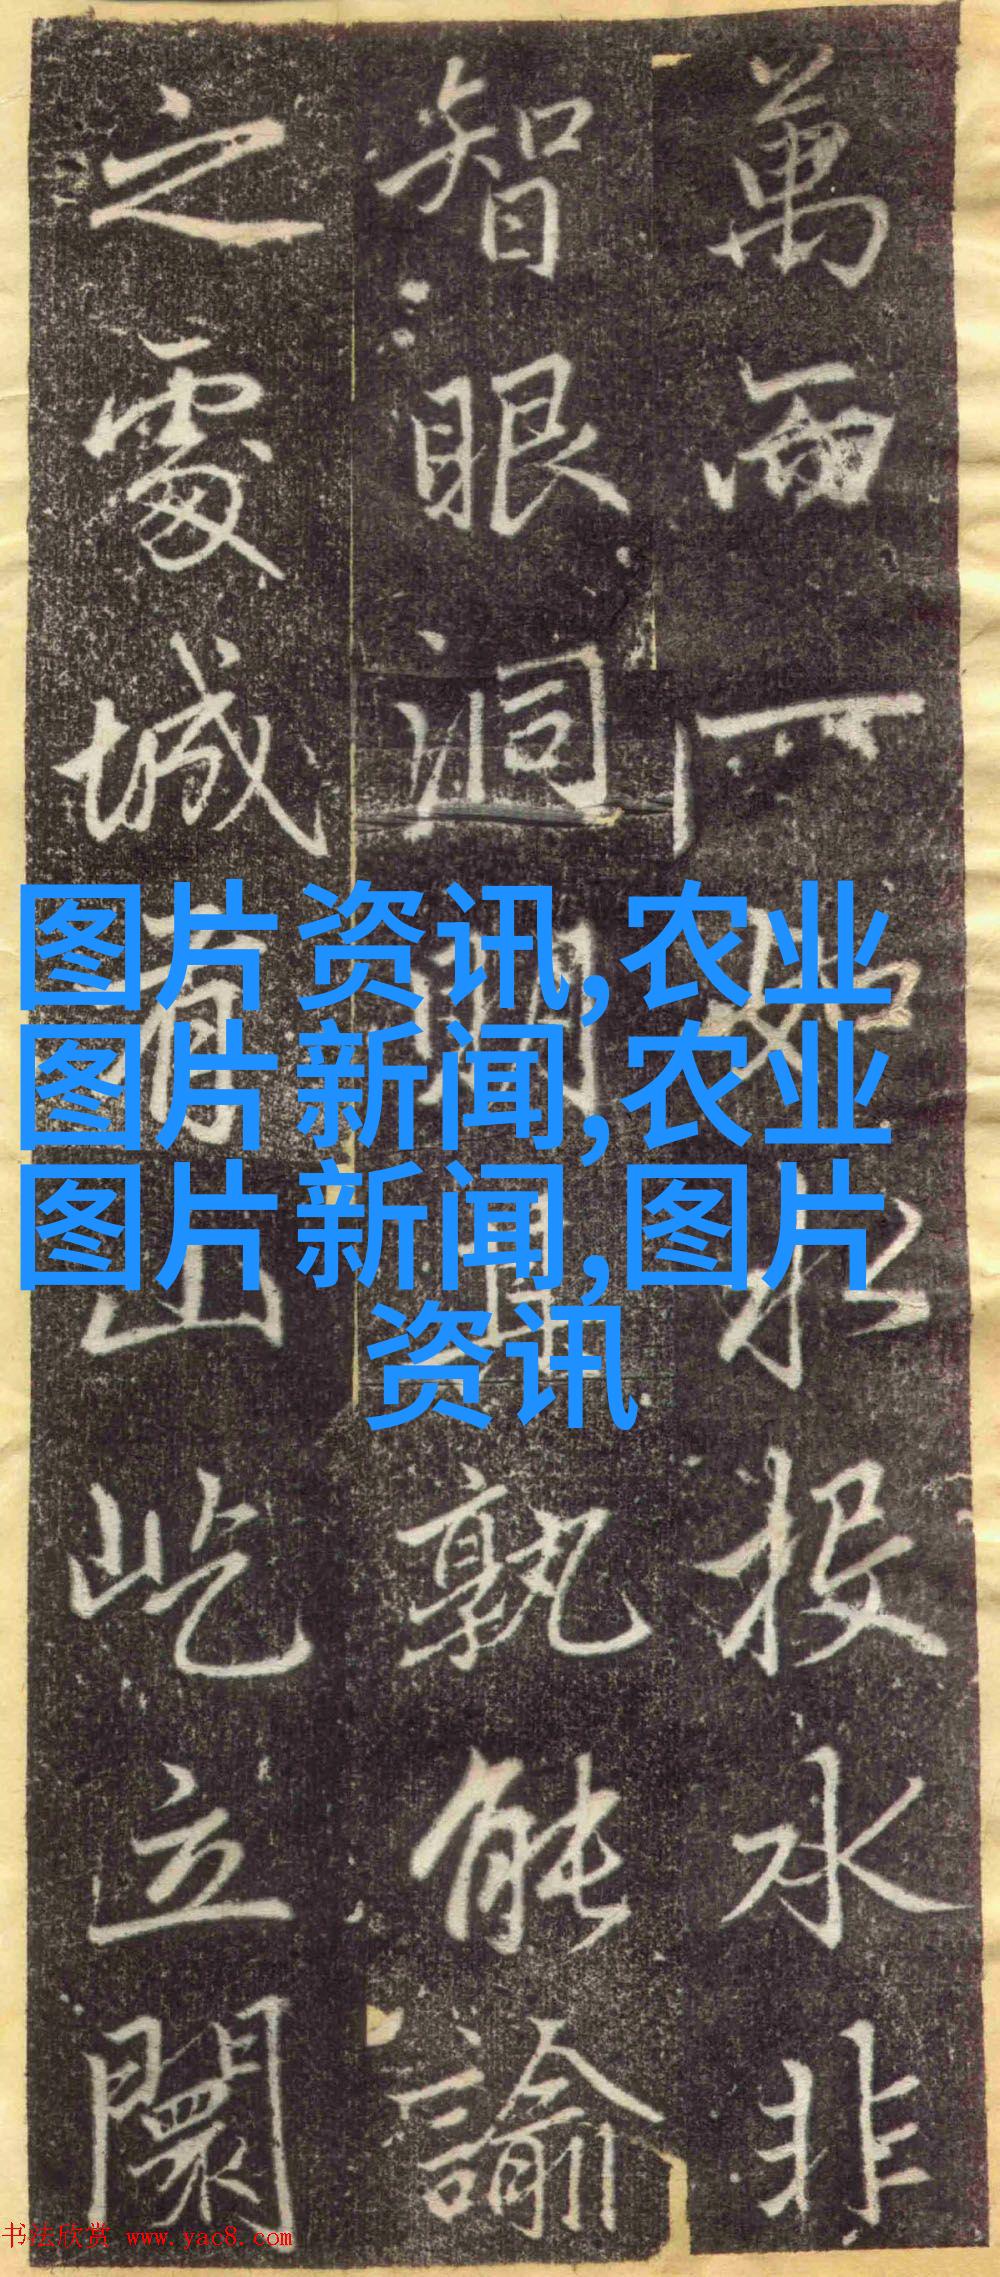 萬而一如水投水非
智眼洞孰能諭
之處城有山屹立闤
图片资讯,农业
图片新闻,农业
图片新闻,图片
资讯
书法欣赏 www.yac8.com